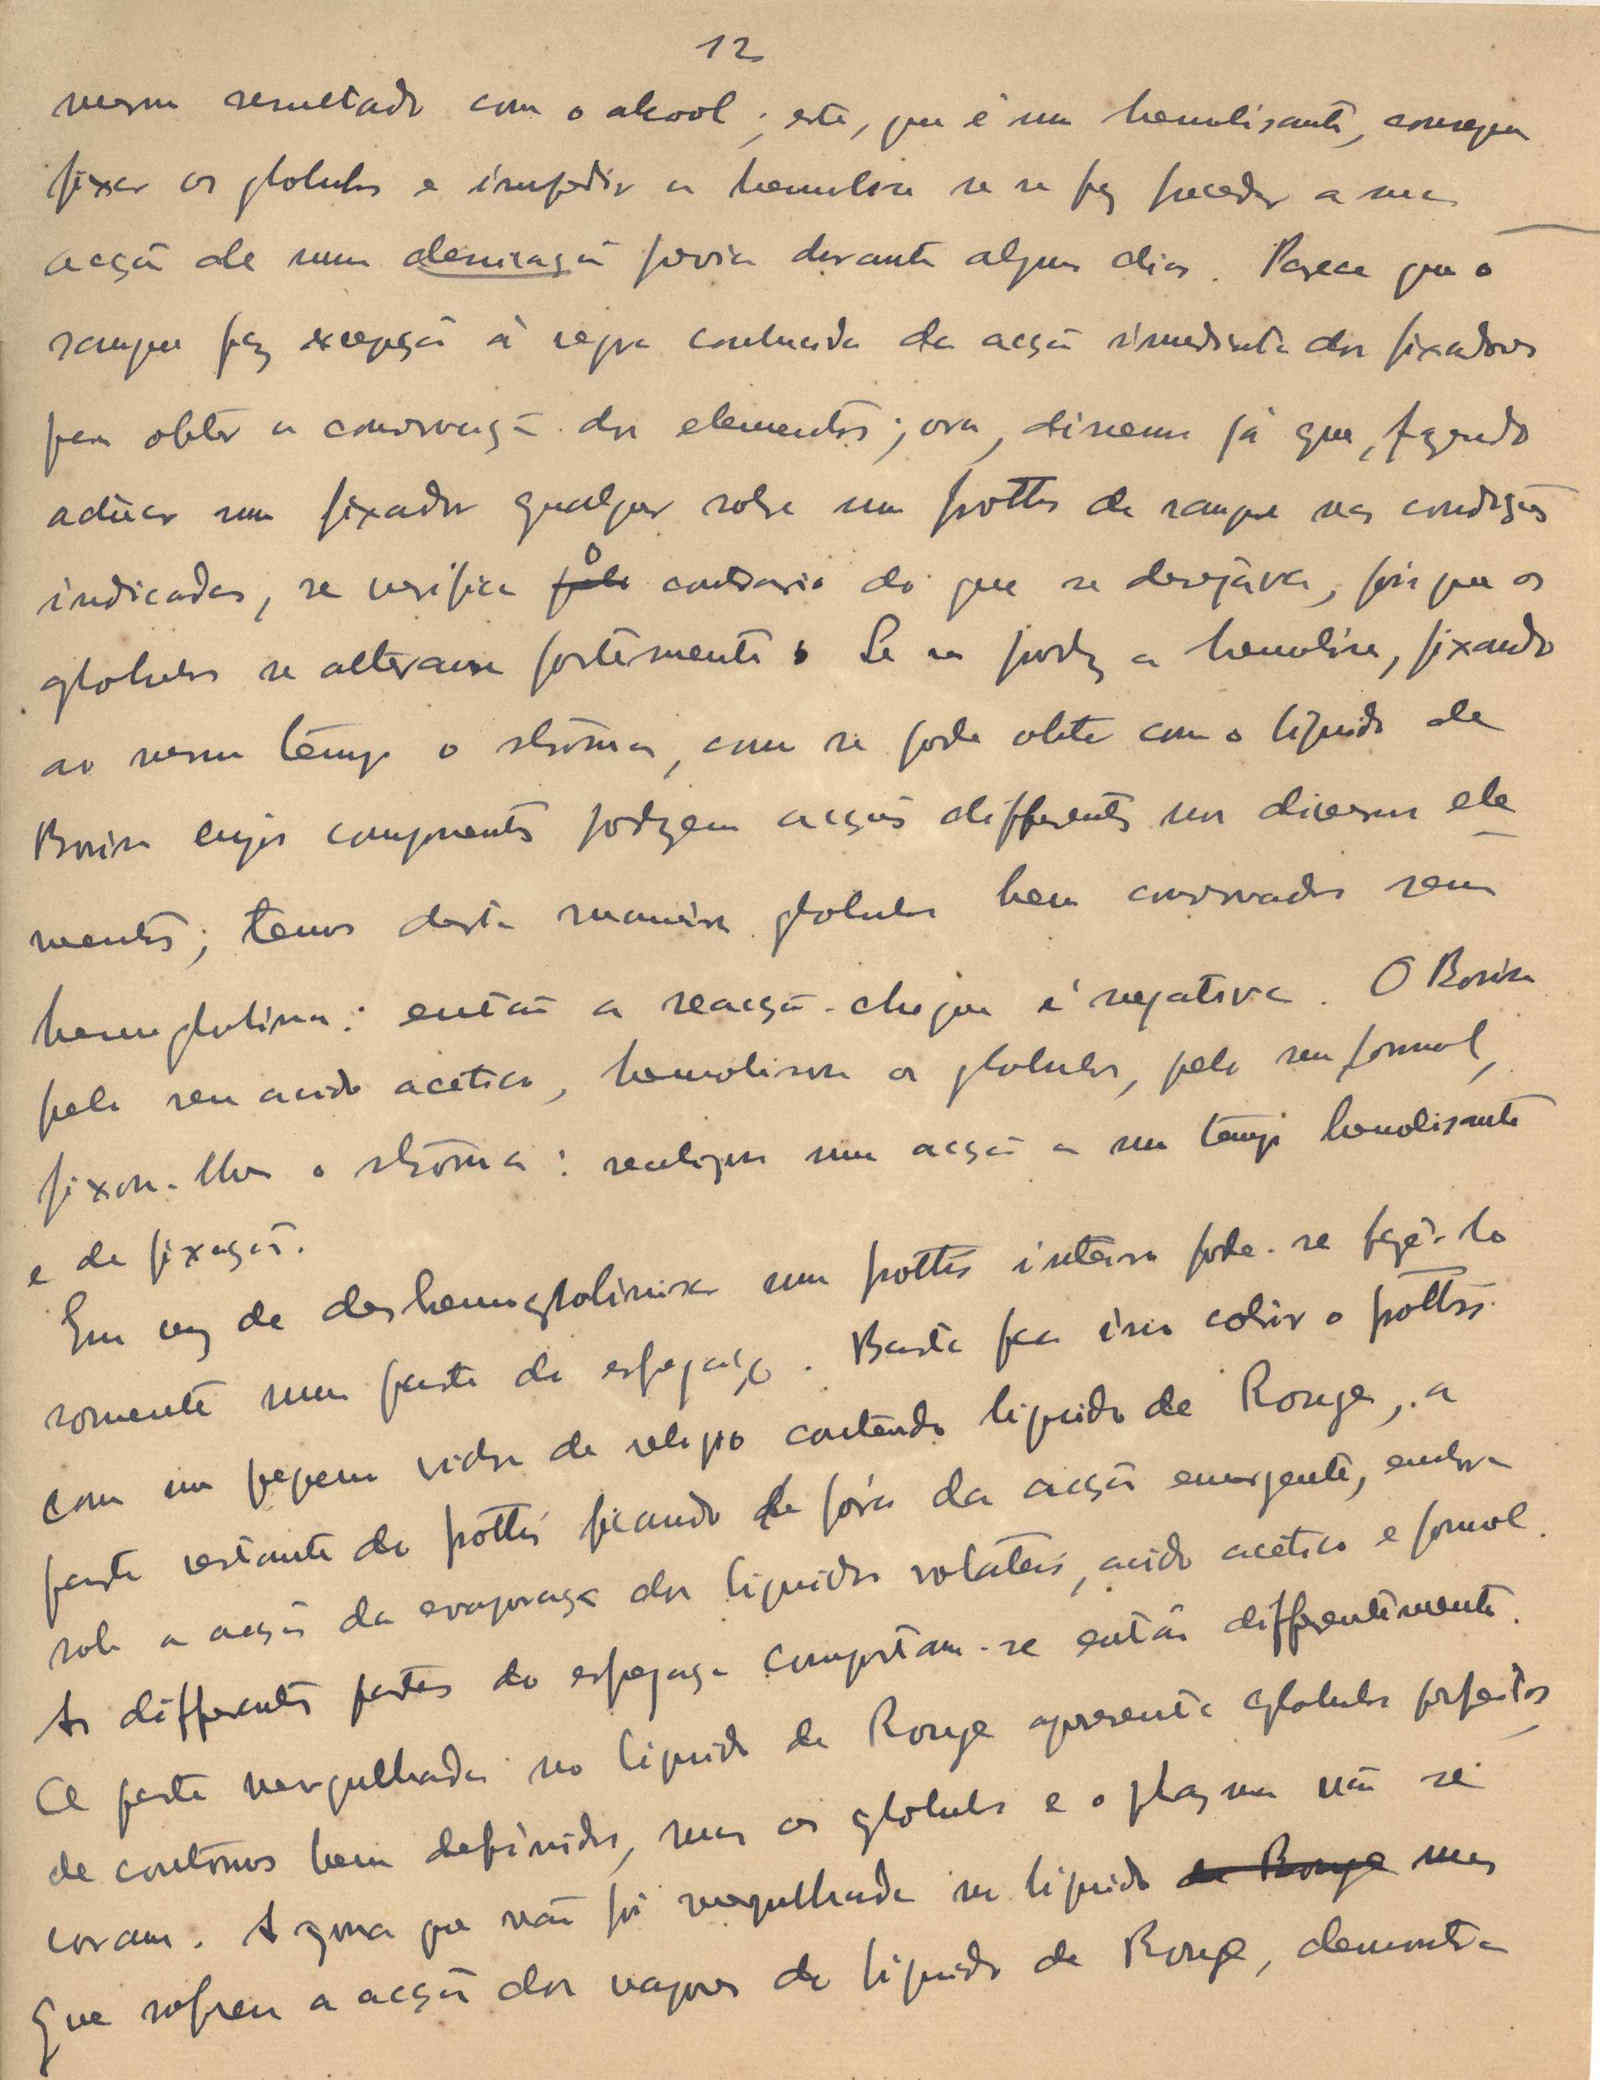 12
mesmo resultado com o alcool; este, que é um hemolisante, consegue
fixar os globulos e impedir a hemolise se se fez preceder a sua
acção de uma dessicação previa durante alguns dias. Parece que o
sangue faz excepção à regra conhecida da acção immediata dos fixadores
para obter a conservação dos elementos; ora, dissemos já que, fazendo
actuar um fixador qualquer sobre um frottis de sangue nas condições
indicadas, se verifica o contrario do que se desejáva, pois que os
globulos se alteram fortemente. Se se produz a hemolise, fixando
ao mesmo tempo o strôma, como se pode obter com o liquido de
Bouin cujos componentes produzem acções differentes nos diversos ele
mentos; temos desta maneira globulos bem conservados sem
hemoglobina: então a reacção é negativa. O Bouin
pelo seu acido acetico, hemolisou os globulos, pelo seu formol,
fixou-lhes o strôma: realizou uma acção a um tempo hemolisante
e de fixação.
Em vez de deshemoglobinisar um frottis inteiro pode-se fazê-lo
somente numa parte do esfregaço. Basta para isso cobrir o frottis
com um pequeno vidro de relogio contendo liquido de Rouge, a
parte restante do frottis ficando de fóra da acção emergente, embora
sob a acção da evaporação dos liquidos volateis, acido acetico e formol.
As differentes partes do esfregaço comportam-se então differentemente.
A parte mergulhada no liquido de Rouge apresenta globulos perfeitos,
de contornos bem definidos, mas os globulos e o plasma não se
coram. A zona que não foi mergulhada no liquido de Rouge mas
que sofreu a acção dos vapores do liquido de Rouge, demonstra